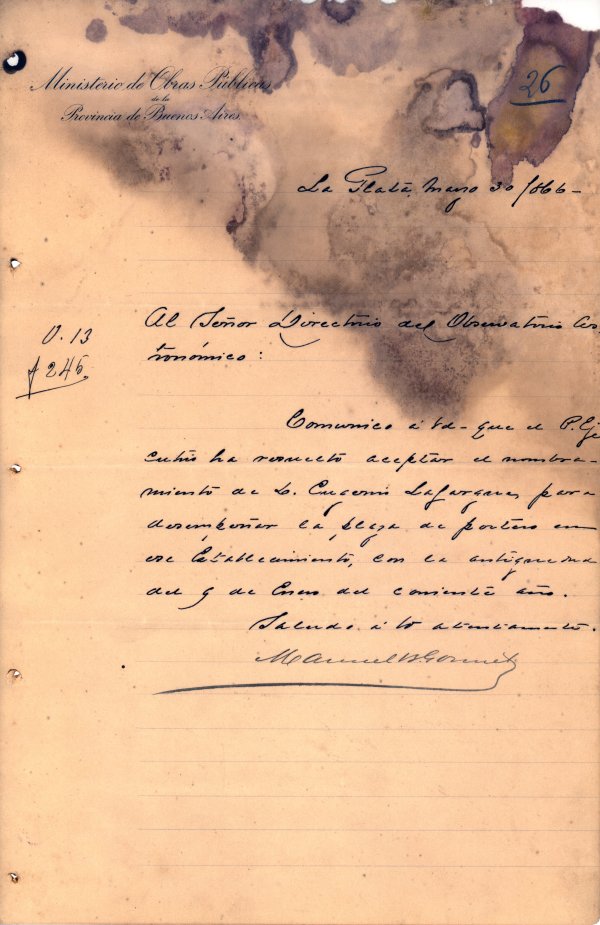 Ministerio de Obras Públicas
de la
Provincia de Buenos Aires
26
La Plata, Mayo 30/
O. 13
f 245.
Al Señor Director del Observatorio As,
tronómico:
Comunico á Vd- que el P. Eje
cutivo ha resuelto aceptar el nombra-
miento de D. Eugenio Lafargue, para
desempeñar la plaza de portero en
ese Establecimiento, con la antigüedad
del 9 de Enero del corriente año.
Saludo á Vd atentamente.
Manuel B. Gonnet